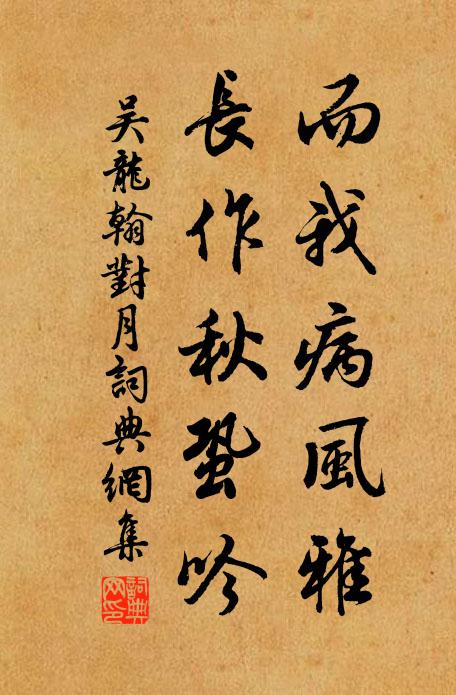 而我病風雅
長作秋蛩吟
吴龍翰對月詞典網集
詞典網印